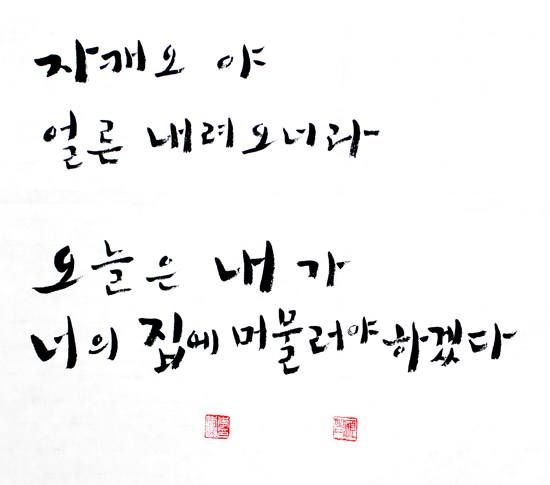 자캐오 야
얼른 내려오너라
오늘은 내가
너의 집에 머물러야 하겠다